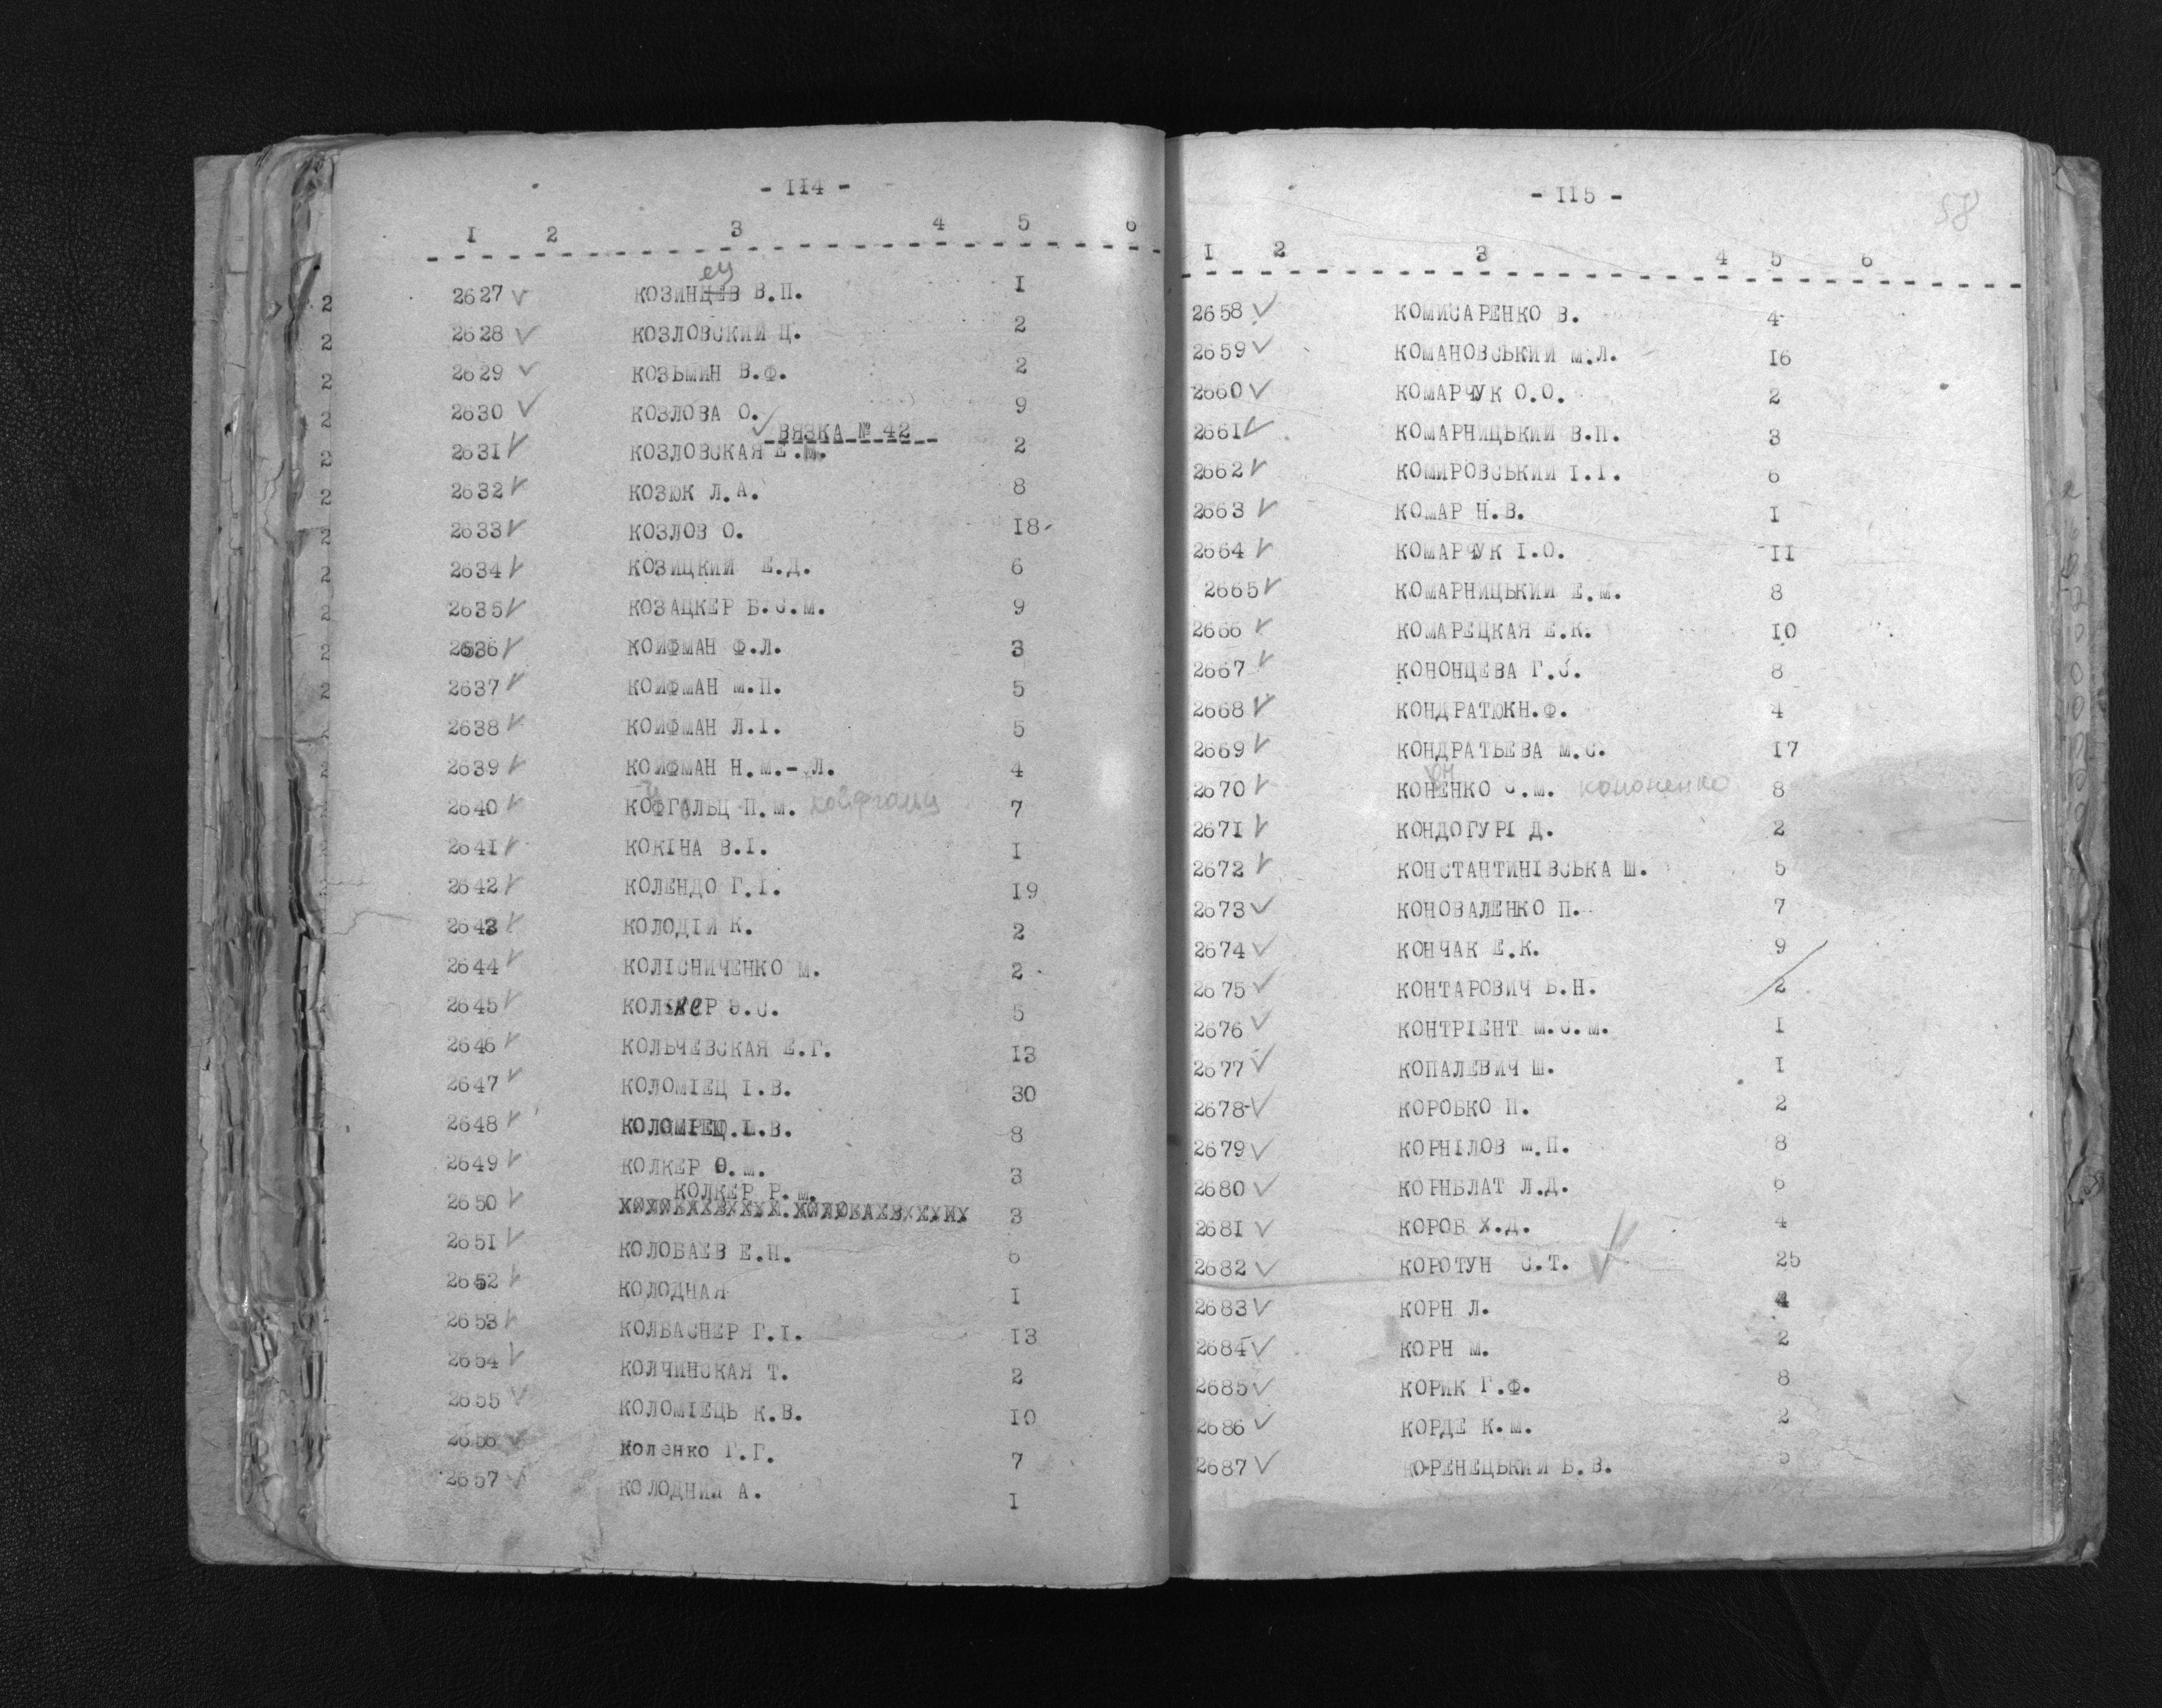 - II4 -
I 2 3 4 5 6
ец
2627 КОЗИНЦЕВ В.П. I
2628 КОЗЛОВСКИЙ Ц. 2
2629 КОЗЬМИН В.Ф. 2
2630 КОЗЛОВА О. 9
ВЯЗКА № 42
2631 КОЗЛОВСКАЯ Е.М. 2
2632 КОЗЮК Л.А. 8
2633 КОЗЛОВ О. I8
2634 КОЗИЦКИЙ Е.Д. 6
2635 КОЗАЦКЕР Б.С.М. 9
2636 КОЙФМАН Ф.Л. 3
2637 КОЙФМАН М.П. 5
2638 КОЙФМАН Л.І. 5
2639 КОЙФМАН Н.М.-Л. 4
2640 КОФГАЛЬЦ П.М. койфгальц 7
2641 КОКІНА В.І. I
2642 КОЛЕНДО Г.І. I9
2643 КОЛОДІЙ К. 2
2644 КОЛІСНИЧЕНКО М. 2
2645 5
2646 КОЛЬЧЕВСКАЯ Е.Г. I3
2647 КОЛОМІЕЦ І.В. 30
2648 8
2649 КОЛКЕР О.М. 3
КОЛКЕР Р.М.
2650 3
2651 КОЛОБАЕВ Е.Н. 6
2652 КОЛОДНАЯ I
2653 КОЛБАСНЕР Г.І. I3
2654 КОЛЧИНСКАЯ Т. 2
2655 КОЛОМІЕЦЬ К.В. I0
2656 Коленко Г.Г. 7
2657 КОЛОДНИЙ А. I
- II5 -
58
I 2 3 4 5 6
2658 КОМИСАРЕНКО В. 4
2659 КОМАНОВСЬКИЙ М.Л. I6
2660 КОМАРЧУК О.О. 2
2661 КОМАРНИЦЬКИЙ В.П. 3
2662 КОМИРОВСЬКИЙ І.І. 6
2663 КОМАР Н.В. I
2664 КОМАРЧУК І.О. II
2665 КОМАРНИЦЬКИЙ Е.М. 8
2666 КОМАРЕЦКАЯ Е.К. I0
2667 КОНОНЦЕВА Г.С. 8
2668 КОНДРАТЮКН.Ф. 4
2669 КОНДРАТЬЕВА М.С. I7
он
2670 КОНЕНКО С.М. кононенко 8
2671 КОНДОГУРІ Д. 2
2672 КОНСТАНТИНІВСЬКА Ш. 5
2673 КОНОВАЛЕНКО П. 7
2674 КОНЧАК Е.К. 9
2675 КОНТАРОВИЧ Б.Н. 2
2676 КОНТРІЕНТ М.С.М. I
2677 КОПАЛЕВИЧ Ш. I
2678 КОРОБКО П. 2
2679 КОРНІЛОВ М.П. 8
2680 КОРНБЛАТ Л.Д. 6
2681 КОРОБ Х.Д. 4
2682 КОРОТУН С.Т. 25
2683 КОРН Л. 4
2684 КОРН М. 2
2685 КОРИК Г.Ф. 8
2686 КОРДЕ К.М. 2
2687 КОРЕНЕЦЬКИЙ Б.В. 5